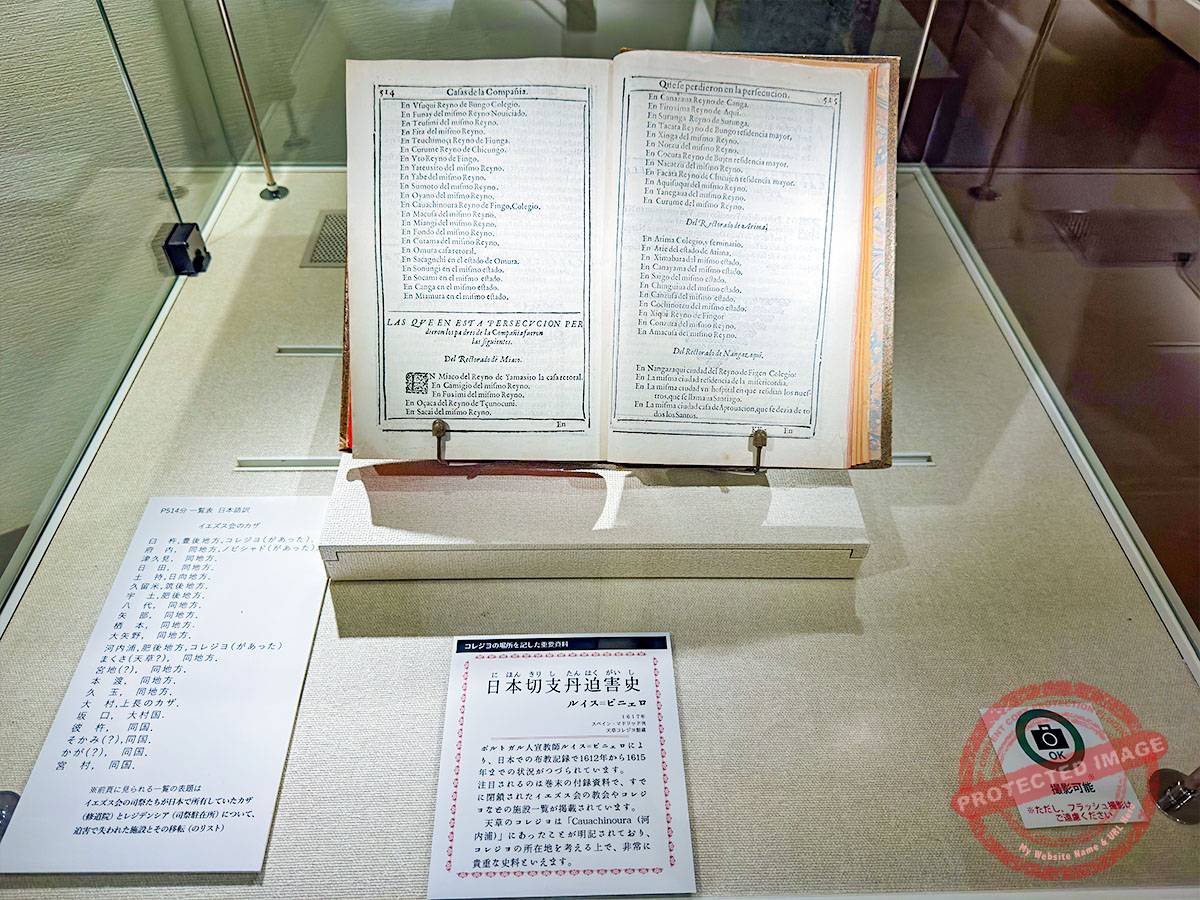 514
Casas de la Compañia.
En Vsuqui Reyno de Bungo Colegio.
En Funay del mismo Reyno Nouiciado.
En Tcusimi del mismo Reyno.
En Fita del mismo Reyno.
En Tcuchimoçi Reyno de Fiunga.
En Curume Reyno de Chicungo.
En Vto Reyno de Fingo.
En Yateuxiro del mismo Reyno.
En Yabe del mismo Reyno.
En Sumoto del mismo Reyno.
En Oyano del mismo Reyno.
En Cauachinoura Reyno de Fingo, Colegio.
En Macusa del mismo Reyno.
En Miangi del mismo Reyno.
En Fondo del mismo Reyno.
En Cutama del mismo Reyno.
En Omura casa retoral.
En Sacaguchi en el estado de Omura.
En Sonungi en el mismo estado.
En Socami en el mismo estado.
En Canga en el mismo estado.
En Miamura en el mismo estado.
LAS QVE EN ESTA PERSECVCION PER
dieron los padres de la Compañia fueron
las siguientes.
Del Rectorado de Miaco.
EN Miaco del Reyno de Yamaxito la casa retoral.
En Camigio del mismo Reyno.
En Fuximi del mismo Reyno.
En Oçaca del Reyno de Tçunocuni.
En Sacai del mismo Reyno.
En
Que se perdieron en la persecucion.
515
En Canazaua Reyno de Canga.
En Firoxima Reyno de Aqui.
En Surunga Reyno de Surunga.
En Tacata Reyno de Bungo residencia mayor.
En Xinga del mismo Reyno.
En Notzu del mismo Reyno.
En Cocura Reyno de Bujen residencia mayor.
En Nacatzu del mismo Reyno.
En Facata Reyno de Chicujen residencia mayor.
En Aquisuqui del mismo Reyno.
En Yanegaua del mismo Reyno.
En Curume del mismo Reyno.
Del Rectorado de Arima.
En Arima Colegio, y seminario.
En Arie del estado de Arima.
En Ximabara del mismo estado.
En Canayama del mismo estado.
En Saigo del mismo estado.
En Chinguiua del mismo estado.
En Canzusa del mismo estado.
En Cochinotzu del mismo estado.
En Xiqui Reyno de Fingo
En Conzura del mismo Reyno.
En Amacusa del mismo Reyno.
Del Rectorado de Nangazaqui.
En Nangazaqui ciudad del Reyno de Figen Colegio
En La misma ciudad residencia de la misericordia.
En La misma ciudad vn hospital en que residian los nues
tros, que se llamaua Santiago.
En La misma ciudad casa de Aprouacion, que se dezia de to
dos los Santos.
En
P514分 一覧表 日本語訳
イエズス会のカザ
臼 杵,豊後地方,コレジヨ(があった).
府 内, 同地方,ノビシャド(があった)
津久見, 同地方.
日 田, 同地方.
土 持,日向地方.
久留米,筑後地方.
宇 土,肥後地方.
八 代, 同地方.
矢 部, 同地方.
栖 本, 同地方.
大矢野, 同地方.
河内浦,肥後地方,コレジヨ(があった)
まくさ(天草?), 同地方.
宮地(?), 同地方.
本 渡, 同地方.
久 玉, 同地方.
大 村,上長のカザ.
坂 口, 大村国.
彼 杵, 同国.
そかみ(?),同国.
かが(?), 同国.
宮 村, 同国.
※前頁に見られる一覧の表題は
イエズス会の司祭たちが日本で所有していたカザ
(修道院)とレジデンシア(司祭駐在所)について、
迫害で失われた施設とその移転(のリスト)
コレジヨの場所を記した重要資料
に ほん きり し たん はく がい し
日本切支丹迫害史
ルイス=ピニェロ
1617年
スペイン・マドリッド刊
天草コレジヨ館蔵
ポルトガル人宣教師ルイス=ピニェロによ
り、日本での布教記録で1612年から1615
年までの状況がつづられています。
注目されるのは巻末の付録資料で、すで
に閉鎖されたイエズス会の教会やコレジ
ヨなどの施設一覧が掲載されています。
天草のコレジヨは「Cauachinoura(河
内浦)」にあったことが明記されており、
コレジヨの所在地を考える上で、非常に
貴重な史料といえます。
OK
撮影可能
※ただし、フラッシュ撮影は
ご遠慮ください
PROTECTED IMAGE
My Website Name & URL